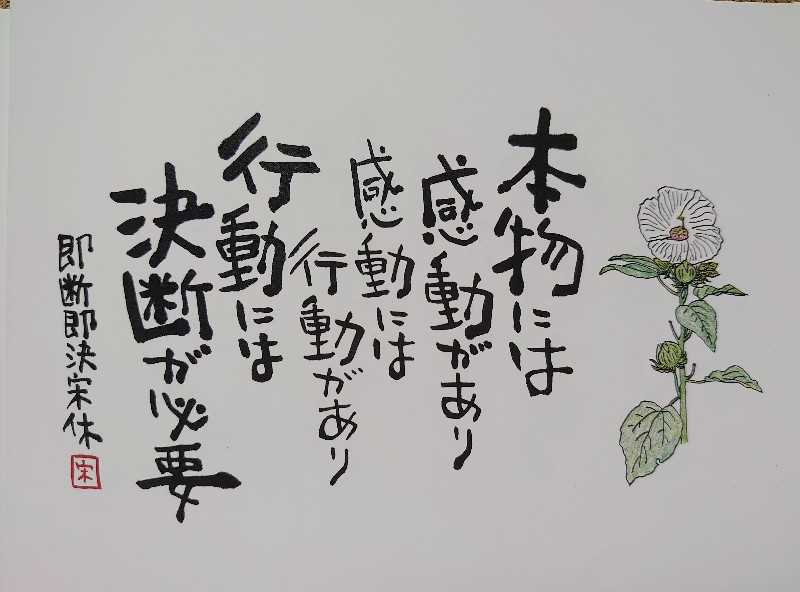 本物には
感動があり
感動には
行動があり
行動には
決断が必要
即断即決宋休
宋